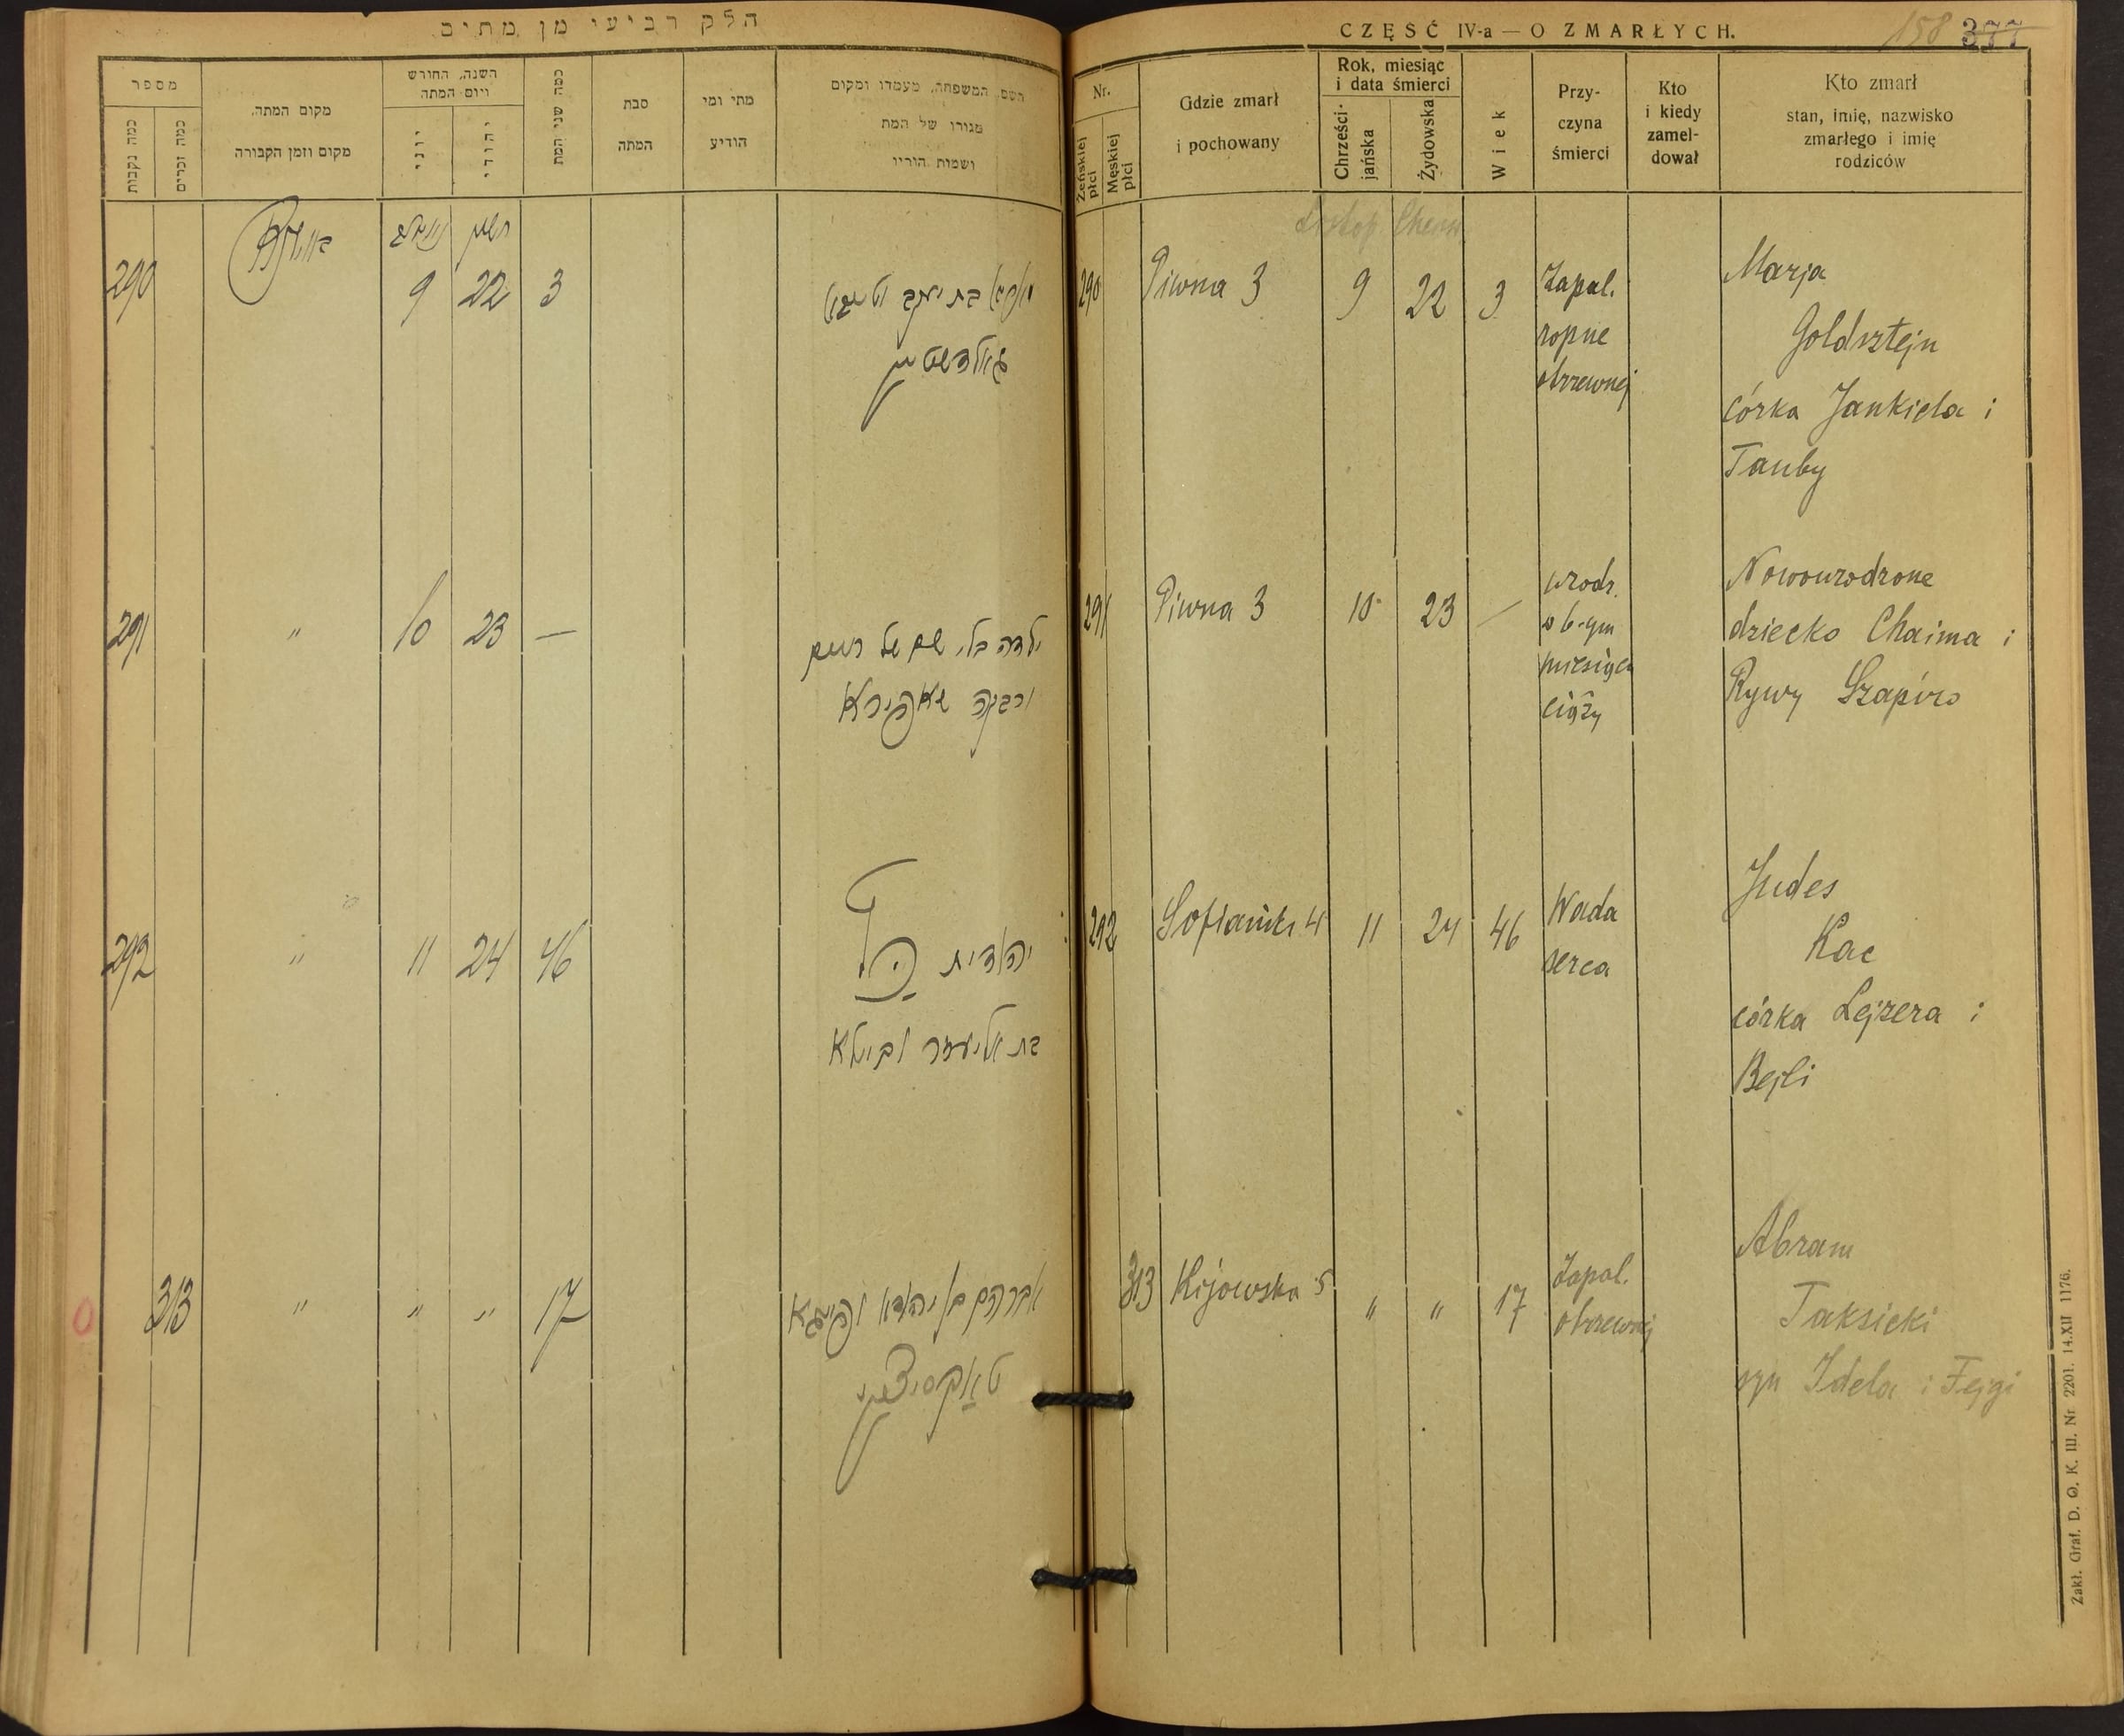 חלק רביעי מן מתים
מספר
כמה נקבות
כמה זכרים
מקום המתה.
מקום וזמן הקבורה
השנה, החורש
ויום המתה
יוני
יהודי
כמה שני המת
סבת
המתה
מתי ומי
הודיע
השם, המשפחה, מעמדו ומקום
מגורו של המת
ושמות הוריו
290
ווילנא
9 22 3
גאלדשטיין
291 " 10 23 —
ילדה בלי שם של חיים
ורבקה שאפירא
292 " 11 24 46
יהודית כ״ץ
בת אליעזר וביילא
313 " " " 17
אברהם בן יהודא ופייגא
טאקסיצקי
CZĘŚĆ IV-a — O ZMARŁYCH.
158 377
Nr.
Żeńskiej płci
Męskiej płci
Gdzie zmarł
i pochowany
Rok, miesiąc
i data śmierci
Chrześci-
jańska
Żydowska
Wiek
Przy-
czyna
śmierci
Kto
i kiedy
zamel-
dował
Kto zmarł
stan, imię, nazwisko
zmarłego i imię
rodziców
Listop. Cheszw.
290 Piwna 3 9 22 3
Zapal.
ropne
otrzewnej
Marja
Goldsztejn
córka Jankiela i
Tauby
291 Piwna 3 10 23 —
urodz.
w 6-ym
miesiącu
ciąży
Nowourodzone
dziecko Chaima i
Rywy Szapiro
292 Sofianiki 4 11 24 46
Wada
serca
Judes
Kac
córka Lejzera i
Bejli
313 Kijowska 5 " " 17
Zapal.
otrzewnej
Abram
Taksicki
syn Idela i Fejgi
Zakł. Graf. D. O. K. III. Nr 2201. 14.XII 1176.